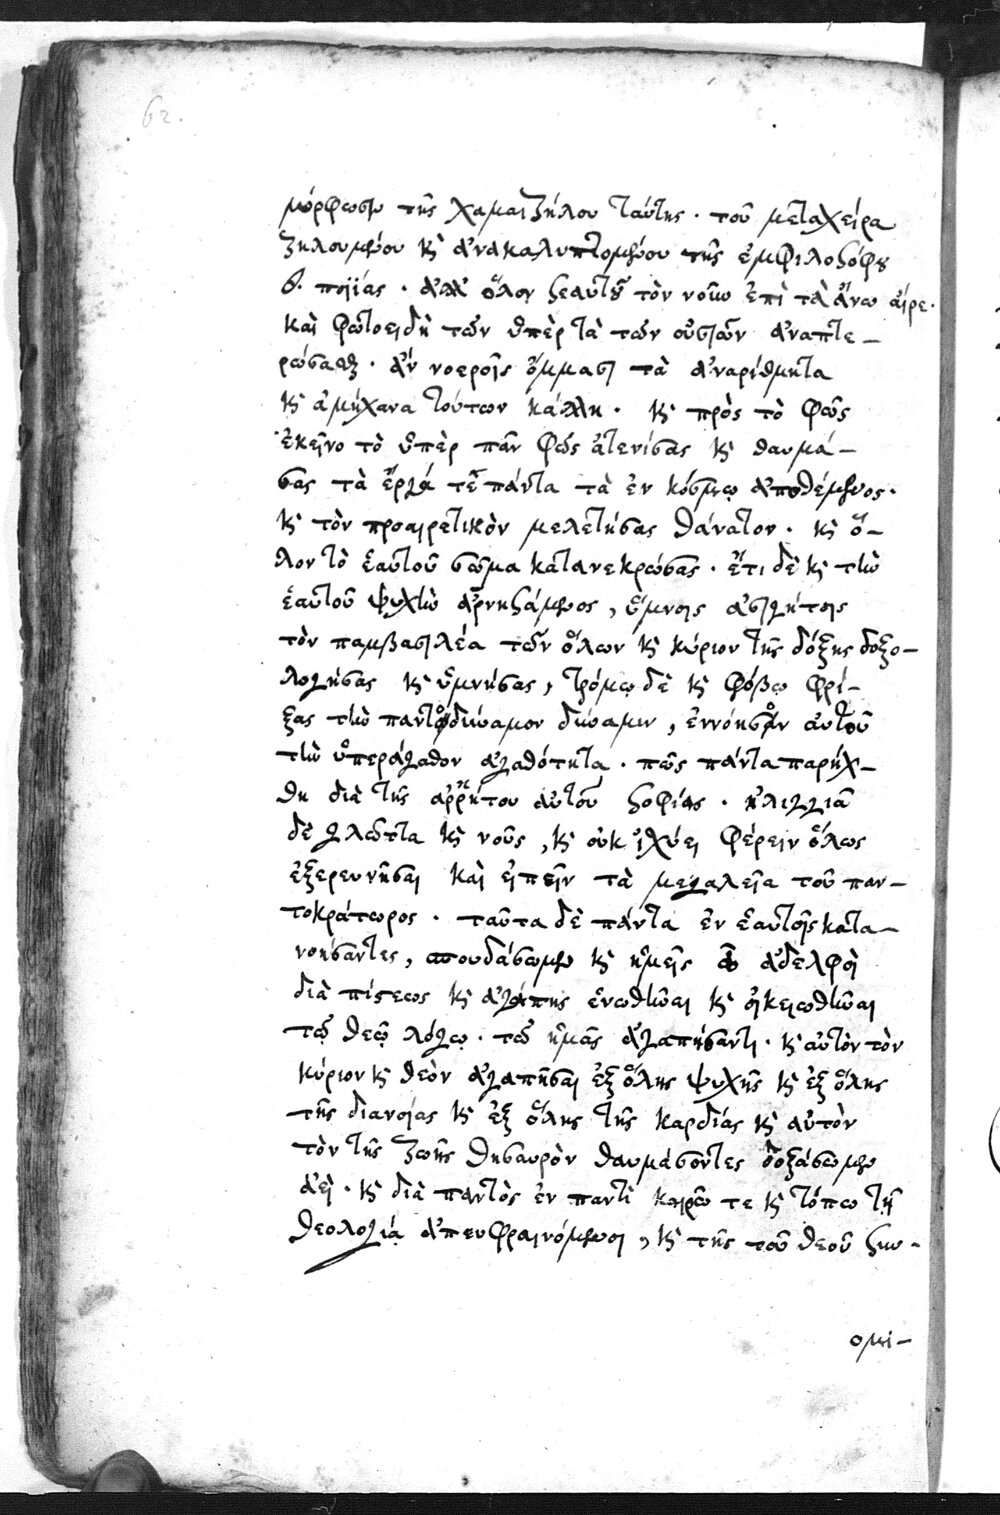 62.
μόρφωσιν τῆς χαμαιζήλου ταύτης · τοῦ μεταχείρα
ζηλουμένου κ̀ ἀνακαλυπτομένου τῆς ἐμφιλοσόφου
ποιΐας · ἀλλ' ὅλον σεαυτοῦ τὸν νοῦν ἐπὶ τὰ ἄνω αἶρε ·
καὶ φωτοειδῆ τῶν ὑπὲρ τὰ τῶν οὐσιῶν ἀναπτε-
ρώσας · ἐν νοεροῖς ὄμμασι τὰ ἀναρίθμητα
κ̀ ἀμήχανα τούτων κάλλη · κ̀ πρὸς τὸ φῶς
ἐκεῖνο τὸ ὑπὲρ πᾶν φῶς ἀτενίσας κ̀ θαυμά-
σας τὰ ἔργα τὲ πάντα τὰ ἐν κόσμῳ ἀποθέμενος ·
κ̀ τὸν προαιρετικὸν μελετήσας θάνατον · κ̀ ὅ-
λον τὸ ἑαυτοῦ σῶμα κατανεκρώσας · ἔτι δὲ κ̀ τὴν
ἑαυτοῦ ψυχὴν ἀρνησάμενος, ὕμνοις ἀσιγήτοις
τὸν παμβασιλέα τῶν ὅλων κ̀ κύριον τῆς δόξης δοξο-
λογήσας κ̀ ὑμνήσας, τρόμῳ δὲ κ̀ φόβῳ φρί-
ξας τὴν παντοδύναμον δύναμιν, ἐννόησον αὐτοῦ
τὴν ὑπεράγαθον ἀγαθότητα · πῶς πάντα παρήχ-
θη διὰ τῆς ἀρρήτου αὐτοῦ σοφίας · ἠλιγγιᾶ
δὲ γλῶττα κ̀ νοῦς, κ̀ οὐκ ἰσχύει φέρειν ὅλως
ἐξερευνῆσαι καὶ εἰπεῖν τὰ μεγαλεῖα τοῦ παν-
τοκράτωρος · ταῦτα δὲ πάντα ἐν ἑαυτοῖς κατα-
νοήσαντες, σπουδάσωμεν κ̀ ἡμεῖς ὦ ἀδελφοὶ
διὰ πίστεως κ̀ ἀγάπης ἑνωθῆναι κ̀ οἰκειωθῆναι
τῷ θεῷ λόγῳ · τῷ ἡμᾶς ἀγαπήσαντι · κ̀ αὐτὸν τὸν
κύριον κ̀ θεὸν ἀγαπῆσαι ἐξ ὅλης ψυχῆς κ̀ ἐξ ὅλης
τῆς διανοίας κ̀ ἐξ ὅλης τῆς καρδίας κ̀ αὐτὸν
τὸν τῆς ζωῆς θησαυρὸν θαυμάσοντες δοξάσωμεν
ἀεὶ · κ̀ διὰ παντὸς ἐν παντὶ καιρῷ τε κ̀ τόπω τῇ
θεολογίᾳ ἀπευφραινόμενοι, κ̀ τῆς τοῦ θεοῦ συν-
ομι-